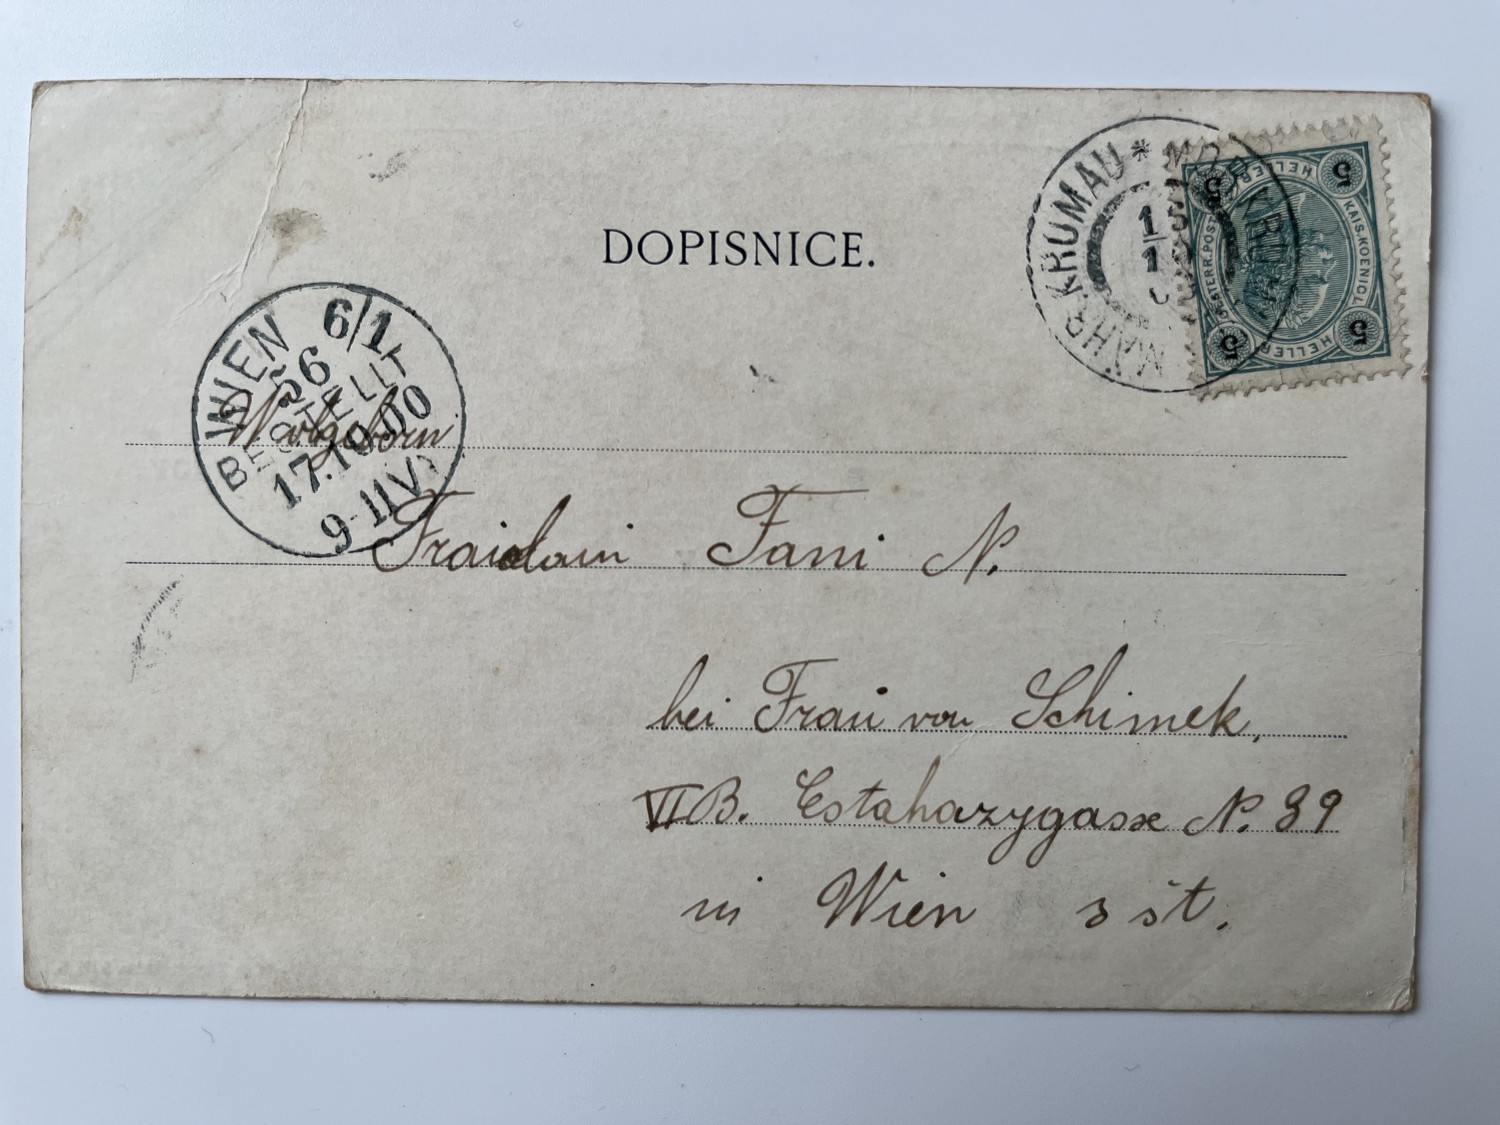 DOPISNICE.
MÄHR. KRUMAU * MOR. KRUM
5 HELLER 5
KAIS. KOENIGL.
OESTERR. POST
5 HELLER 5
WIEN 6/1
56
BESTELLT
17.10.00
9-11V
Wolgeborn
Fraidain Fani N.
bei Frau von Schimek,
VI B. Estahazygasse N. 39
in Wien 3 št.